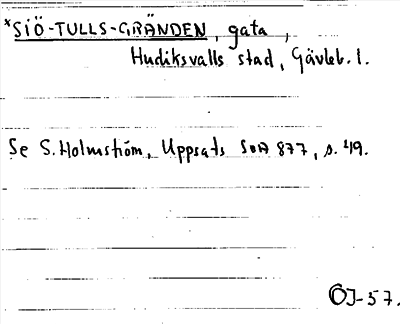 *SIÖ-TULLS-GRÄNDEN, gata,
Hudiksvalls stad, Gävleb. l.
Se S. Holmström, Uppsats SOA 877, s. 49.
ÖJ-57.